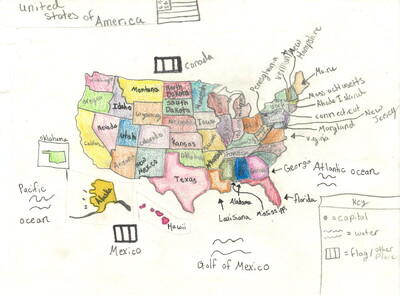 United
States of America
Canada
Pennsylvania
New
Hampshire
Maine
Massachusetts
Rhode Island
connecticut
New
Jersey
Maryland
Virginia
Montana
North
Dakota
South
Dakota
Oregon
Idaho
Wyoming
Nevada
Utah
Colorado
California
Arizona
New
Mexico
Kansas
Iowa
Texas
Oklahoma
Georgia
Atlantic ocean
Florida
Alabama
Louisiana
Pacific
ocean
Alaska
Hawii
Mexico
Gulf of Mexico
Key
= capital
= water
= flag/other
Place